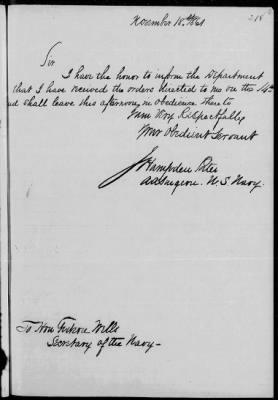 218
November 15th 1861
Sir
I have the honor to inform the Department
that I have received the orders directed to me on the 14th
nd shall leave this afternoon in obedience thereto
I am Very Respectfully
Your Obedient Servant
J Hampden
Ass Surgeon. U. S. Navy.
To Hon Gideon Wells
Secretary of the Navy-